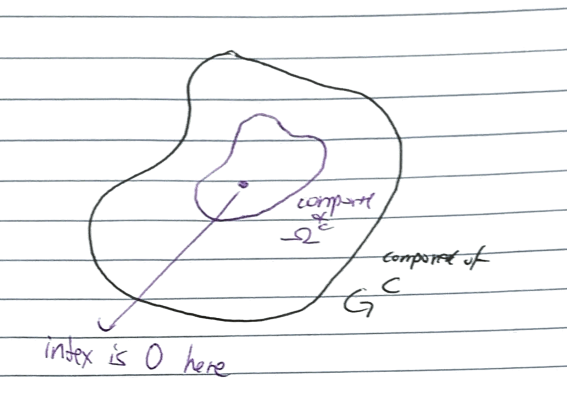 component
of
Ω^c
component of
G^C
index is 0 here